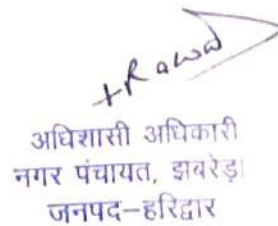 अधिशासी अधिकारी
नगर पंचायत, झबरेड़ा
जनपद-हरिद्वार